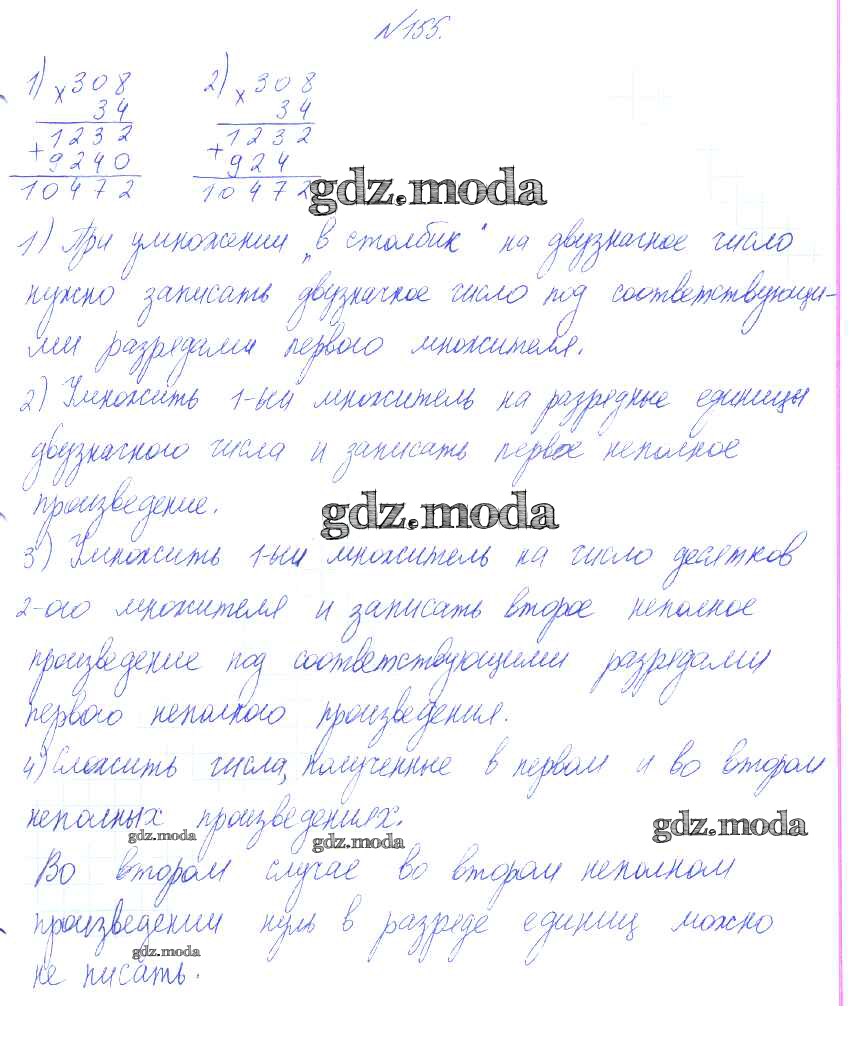 №155.
1) ×308 2) ×308
34 34
+1232 +1232
9240 924
10472 10472
gdz.moda
1) При умножении „в столбик" на двузначное число
нужно записать двузначное число под соответствующи-
ми разрядами первого множителя.
2) Умножить 1-ый множитель на разрядные единицы
двузначного числа и записать первое неполное
произведение.
gdz.moda
3) Умножить 1-ый множитель на число десятков
2-ого множителя и записать второе неполное
произведение под соответствующими разрядами
первого неполного произведения.
4) Сложить числа, полученные в первом и во втором
неполных произведениях.
gdz.moda
gdz.moda
gdz.moda
Во втором случае во втором неполном
произведении нуль в разряде единиц можно
gdz.moda
не писать.